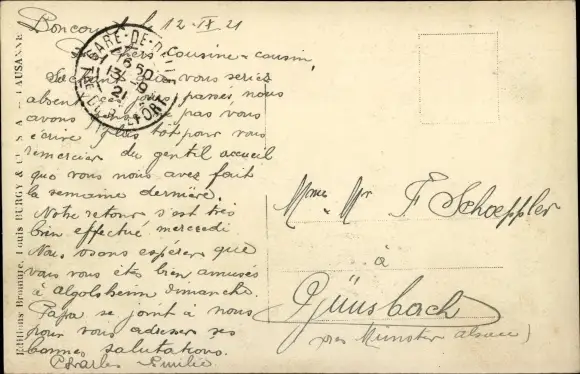 Boncourt, le 12-IX 21
chers cousine & cousin,
Sachant que vous seriez
absents ces jours passés nous
avons pas vous
écrire plus tôt pour vous
remercier du gentil accueil
que vous nous avez fait
la semaine dernière.
Notre retour s'est très
bien effectué mercredi
Nous osons espérer que
vous vous êtes bien amusés
à algolsheim dimanche.
Papa se joint à nous
pour vous adresser ses
bonnes salutations.
Charles Emilie
GARE-DE-
16 50
13-9
21
Mme & Mr F. Schoeppler
à
Günsbach
près Münster alsace)
Editions Bromure, Louis BURGY & C LAUSANNE